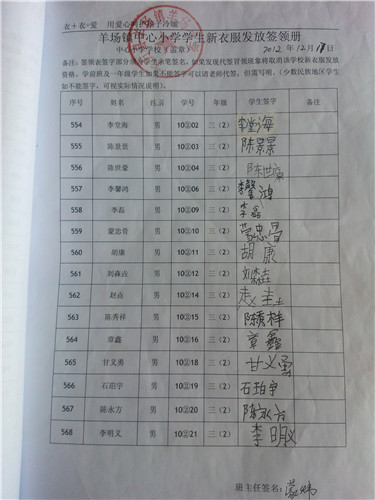 衣+衣=爱 用爱心呵护孩子冷暖
羊场镇中心小学学生新衣服发放签领册
中心小学校（盖章） 2012/12/18日
备注：签领表签字部分由学生亲笔签名，如果发现代签冒领现象将取消该学校新衣服发放
资格。学前班及一年级学生如果不能签字可以请老师代签，但需写明。（少数民族地区学生
如不能签字，可视实际情况说明）。
序号 姓名 性别 学号 年级 学生签字 备注
554 李堂海 男 10②02 三（2） 李堂海
555 陈景景 男 10②03 三（2） 陈景景
556 陈世豪 男 10②04 三（2） 陈世豪
557 李馨鸿 男 10②06 三（2） 李馨鸿
558 李磊 男 10②09 三（2） 李磊
559 蒙忠骨 男 10②10 三（2） 蒙忠骨
560 胡康 男 10②11 三（2） 胡康
561 刘森垚 男 10②12 三（2） 刘森垚
562 赵垚 男 10②14 三（2） 赵垚
563 陈秀祥 男 10②15 三（2） 陈秀祥
564 章鑫 男 10②16 三（2） 章鑫
565 甘义勇 男 10②18 三（2） 甘义勇
566 石珀宇 男 10②19 三（2） 石珀宇
567 陈永方 男 10②20 三（2） 陈永方
568 李明义 男 10②21 三（2） 李明义
班主任签名：